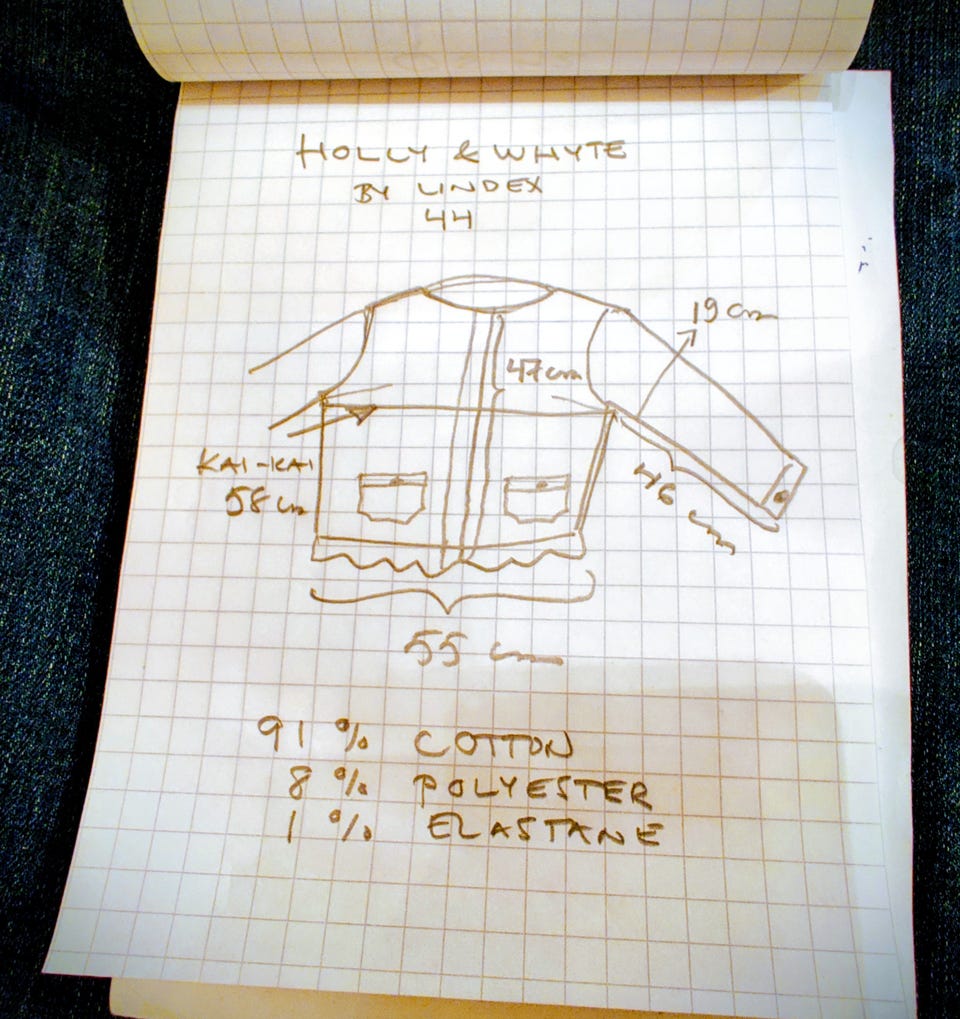 HOLLY & WHYTE
BY LINDEX
44
19 cm
47 cm
KAI-KAI
58 cm
46 cm
55 cm
91 % COTTON
8 % POLYESTER
1 % ELASTANE